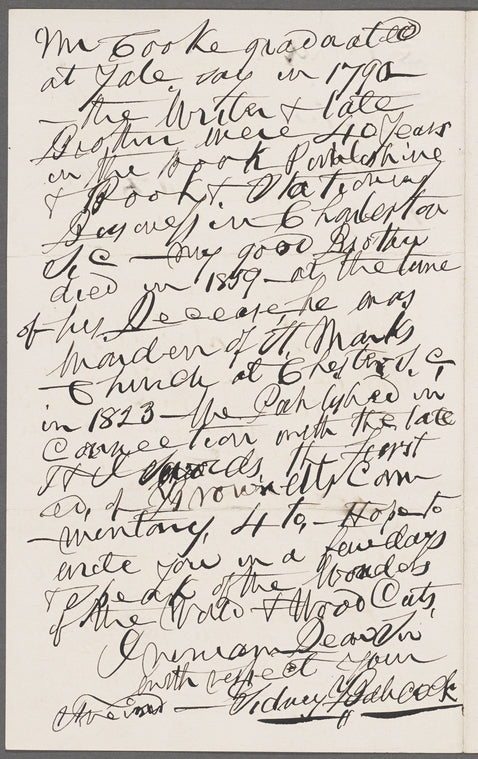 Mr Cooke graduated
at Yale, say in 1790
— the Writer & late
Brother were 40 Years
in the Book Publishing
& Book & Stationery
Business in Charleston
S, C — My good Brother
died in 1859 — at the time
of his Decease, he was
Warden of St, Marks
Church at Chester S, C,
in 1823 — We Published in
Connection with the late
the first
ed, of Brownells Com
— mentary, 4 to, — Hope to
write you in a few days
& speak of the Wonders
of the World & Wood Cuts,
I remain Dear Sir
with respect Your
— Sidney Babcock